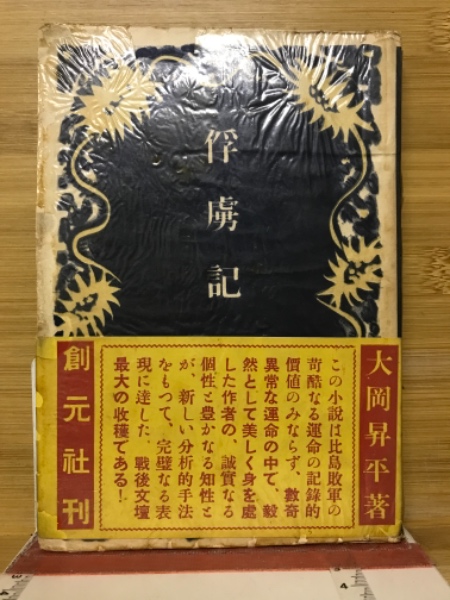 俘虜記
大岡昇平著
この小説は比島敗軍の
苛酷なる運命の記録的
價値のみならず、數奇
異常な運命の中で、毅
然として美しく身を處
した作者の、誠實なる
個性と豊かなる知性と
が、新しい分析的手法
をもつて、完璧なる表
現に達した、戰後文壇
最大の收穫である!
創元社刊